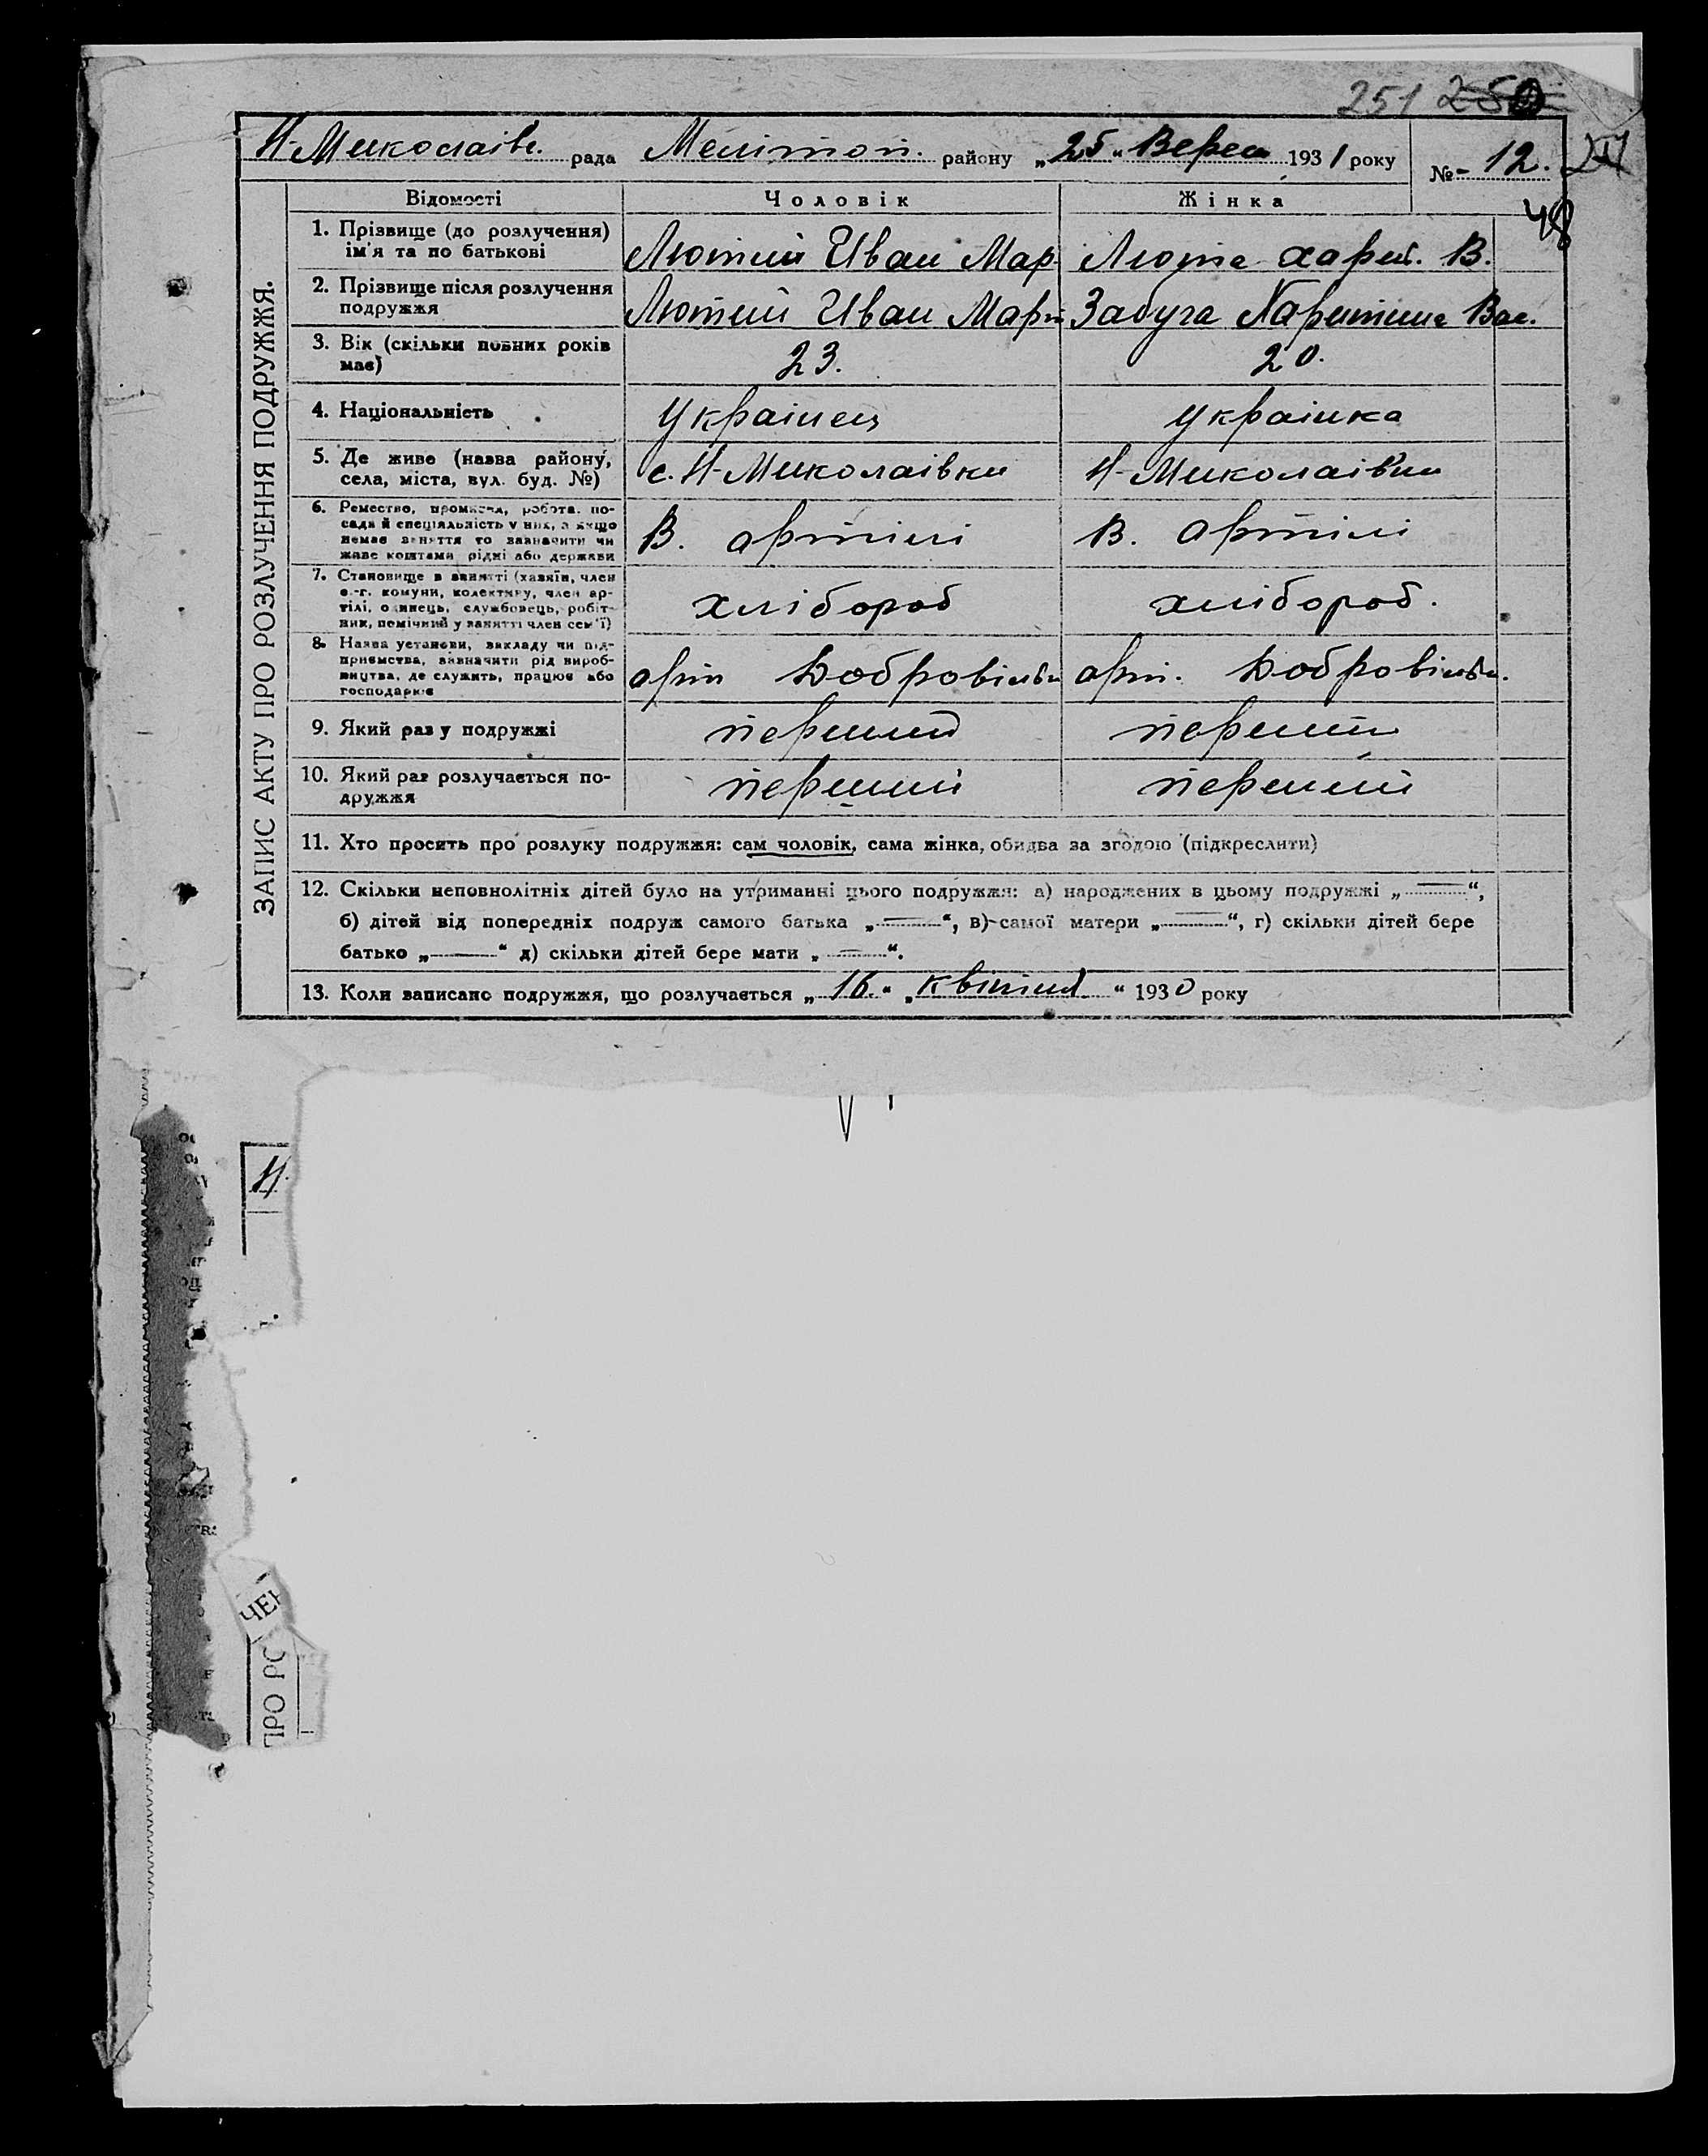 251 250
Н-Миколаів. рада Мелітоп. району „25“ Верес 1931 року № - 12.
48
ЗАПИС АКТУ ПРО РОЗЛУЧЕННЯ ПОДРУЖЖЯ.
Відомості Чоловік Жінка
1. Прізвище (до розлучення)
ім'я та по батькові
Лютий Иван Мар. Люта Харит. В.
2. Прізвище після розлучення
подружжя
Лютий Иван Март Забуга Харитина Вас.
3. Вік (скільки повних років
має)
23. 20.
4. Національність Українец українка
5. Де живе (назва району,
села, міста, вул. буд. №)
с. Н-Миколаівки Н-Миколаівки
6. Ремество, промисел, робота. по-
сада й спеціяльність у них, а якщо
немає заняття то зазначити чи
живе коштами рідні або держави
В. артілі В. артілі
7. Становище в занятті (хазяїн, член
с.-г. комуни, колективу, член ар-
тілі, одинець, службовець, робіт-
ник, помічний у занятті член сем'ї)
хлібороб хлібороб.
8. Назва установи, закладу чи під-
приємства, зазначити рід вироб-
ництва, де служить, працює або
господарює
арт Добровільн арт. Добровільн.
9. Який раз у подружжі перший перший
10. Який раз розлучається по-
дружжя
перший перший
11. Хто просить про розлуку подружжя: сам чоловік, сама жінка, обидва за згодою (підкреслити)
12. Скільки неповнолітніх дітей було на утриманні цього подружжя: а) народжених в цьому подружжі „—“,
б) дітей від попередніх подруж самого батька „—“, в) самої матери „—“, г) скільки дітей бере
батько „—“ д) скільки дітей бере мати „—“.
13. Коли записано подружжя, що розлучається „16.“ „квітня“ 1930 року
Н.
ЧЕН
ПРО РО